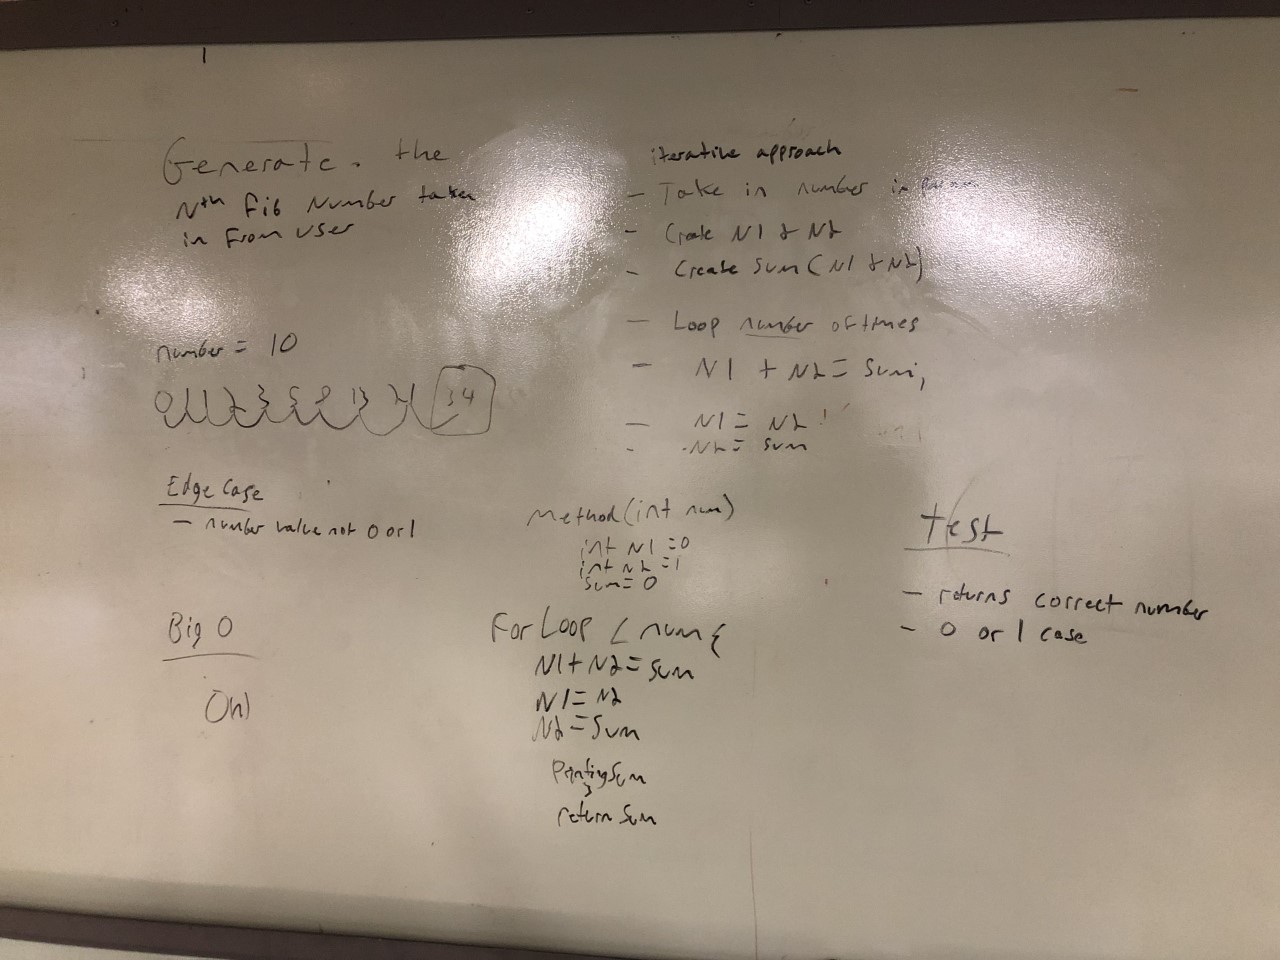 Generate. the
Nth Fib Number taken
in From user
number = 10
0 1 1 2 3 5 8 13 21 34
Edge Case
- number value not 0 or 1
Big O
O(n)
iterative approach
- Take in number in
- Create N1 & N2
- Create sum (N1 & N2)
- Loop number of times
- N1 + N2 = sum;
- N1 = N2
- N2 = sum
Method(int num)
int N1 = 0
int N2 = 1
sum = 0
For Loop < num {
N1 + N2 = sum
N1 = N2
N2 = sum
}
return sum
test
- returns correct number
- 0 or 1 case